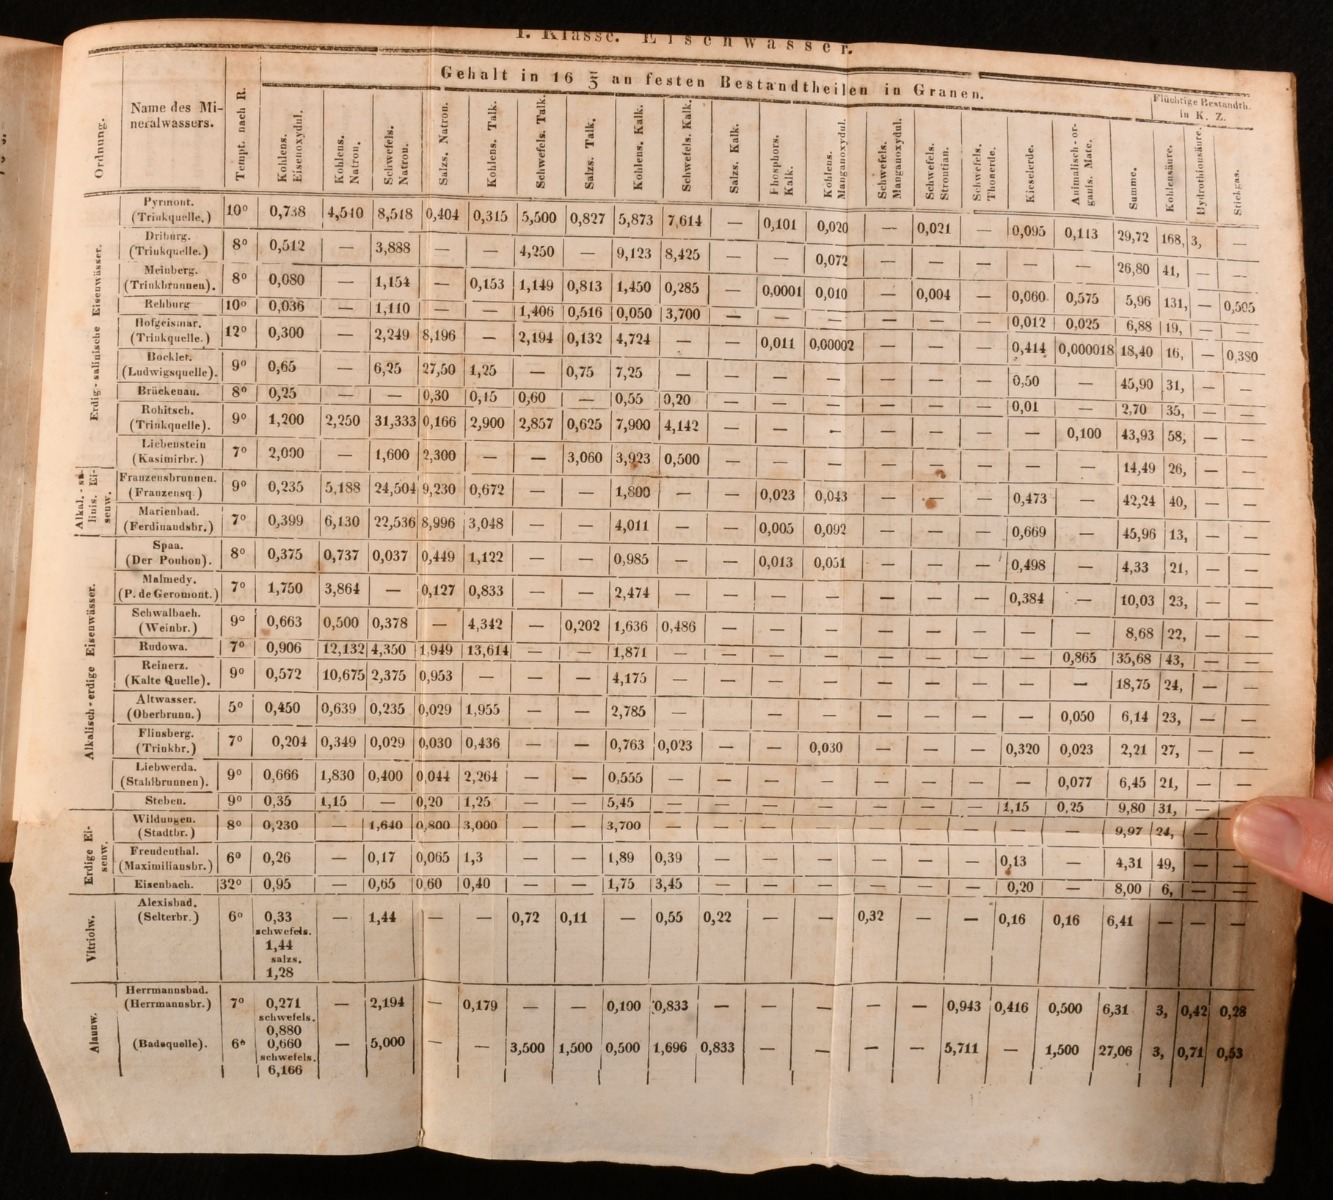 I. Klasse. Eisenwasser.
Gehalt in 16 ℥ an festen Bestandtheilen in Granen.
Flüchtige Bestandth. in K. Z.
Ordnung. | Name des Mineralwassers. | Tempt. nach R. | Kohlens. Eisenoxydul. | Kohlens. Natron. | Schwefels. Natron. | Salzs. Natron. | Kohlens. Talk. | Schwefels. Talk. | Salzs. Talk. | Kohlens. Kalk. | Schwefels. Kalk. | Salzs. Kalk. | Phosphors. Kalk. | Kohlens. Manganoxydul. | Schwefels. Manganoxydul. | Schwefels. Strontian. | Schwefels. Thonerde. | Kieselerde. | Animalisch-organis. Mate. | Summe. | Kohlensäure. | Hydrothionsäure. | Stickgas.
Erdig-salinische Eisenwässer.
Pyrmont. (Trinkquelle.) 10° 0,738 4,510 8,518 0,404 0,315 5,500 0,827 5,873 7,614 — 0,101 0,020 — 0,021 — 0,095 0,113 29,72 168, 3, —
Driburg. (Trinkquelle.) 8° 0,512 — 3,888 4,250 — 9,123 8,425 — — 0,072 — — — — — 26,80 41, — —
Meinberg. (Trinkbrunnen). 8° 0,080 — 1,154 — 0,153 1,149 0,813 1,450 0,285 — 0,0001 0,010 — 0,004 — 0,060 0,575 5,96 131, — 0,505
Rehburg 10° 0,036 — 1,110 — — 1,406 0,516 0,050 3,700 — — — — — — 0,012 0,025 6,88 19, — —
Hofgeismar. (Trinkquelle.) 12° 0,300 — 2,249 8,196 — 2,194 0,132 4,724 — — 0,011 0,00002 — — — 0,414 0,000018 18,40 16, — 0,380
Bocklet. (Ludwigsquelle). 9° 0,65 — 6,25 27,50 1,25 — 0,75 7,25 — — — — — — — 0,50 — 45,90 31, — —
Brückenau. 8° 0,25 — — 0,30 0,15 0,60 — 0,55 0,20 — — — — — — 0,01 — 2,70 35, — —
Rohitsch. (Trinkquelle). 9° 1,200 2,250 31,333 0,166 2,900 2,857 0,625 7,900 4,142 — — — — — — — 0,100 43,93 58, — —
Liebenstein (Kasimirbr.) 7° 2,000 — 1,600 2,300 — — 3,060 3,923 0,500 — — — — — — — — 14,49 26, — —
Alkal.-salinis. Eisenw.
Franzensbrunnen. (Franzensq.) 9° 0,235 5,188 24,504 9,230 0,672 — — 1,800 — — 0,023 0,043 — — — 0,473 — 42,24 40, — —
Marienbad. (Ferdinandsbr.) 7° 0,399 6,130 22,536 8,996 3,048 — — 4,011 — — 0,005 0,092 — — — 0,669 — 45,96 13, — —
Alkalisch-erdige Eisenwässer.
Spaa. (Der Pouhon). 8° 0,375 0,737 0,037 0,449 1,122 — — 0,985 — — 0,013 0,051 — — 0,498 — 4,33 21, — —
Malmedy. (P. de Geromont.) 7° 1,750 3,864 — 0,127 0,833 — — 2,474 — — — — — — — 0,384 — 10,03 23, — —
Schwalbach. (Weinbr.) 9° 0,663 0,500 0,378 — 4,342 — 0,202 1,636 0,486 — — — — — — — — 8,68 22, — —
Rudowa. 7° 0,906 12,132 4,350 1,949 13,614 — — 1,871 — — — — — — — 0,865 35,68 43, — —
Reinerz. (Kalte Quelle). 9° 0,572 10,675 2,375 0,953 — — — 4,175 — — — — — — — — — 18,75 24, — —
Altwasser. (Oberbrunn.) 5° 0,450 0,639 0,235 0,029 1,955 — — 2,785 — — — — — — — — 0,050 6,14 23, — —
Flinsberg. (Trinkbr.) 7° 0,204 0,349 0,029 0,030 0,436 — — 0,763 0,023 — — 0,030 — — — 0,320 0,023 2,21 27, — —
Liebwerda. (Stahlbrunnen). 9° 0,666 1,830 0,400 0,044 2,264 — — 0,555 — — — — — — — — 0,077 6,45 21, — —
Steben. 9° 0,35 1,15 — 0,20 1,25 — — 5,45 — — — — — — — 1,15 0,25 9,80 31, —
Erdige Eisenw.
Wildungen. (Stadtbr.) 8° 0,230 — 1,640 0,800 3,000 — — 3,700 — — — — — — — — — 9,97 24, —
Freudenthal. (Maximiliansbr.) 6° 0,26 — 0,17 0,065 1,3 — — 1,89 0,39 — — — — — — 0,13 — 4,31 49, — —
Eisenbach. 32° 0,95 — 0,65 0,60 0,40 — — 1,75 3,45 — — — — — — 0,20 — 8,00 6, — —
Vitriolw.
Alexisbad. (Selterbr.) 6° 0,33 — 1,44 — — 0,72 0,11 — 0,55 0,22 — — 0,32 — — 0,16 0,16 6,41 — — —
schwefels.
1,44
salzs.
1,28
Alaunw.
Herrmannsbad. (Herrmannsbr.) 7° 0,271 — 2,194 — 0,179 — — 0,190 0,833 — — — — 0,943 0,416 0,500 6,31 3, 0,42 0,28
schwefels.
0,880
(Badequelle). 6° 0,660 — 5,000 — — 3,500 1,500 0,500 1,696 0,833 — — — — 5,711 — 1,500 27,06 3, 0,71 0,53
schwefels.
6,166